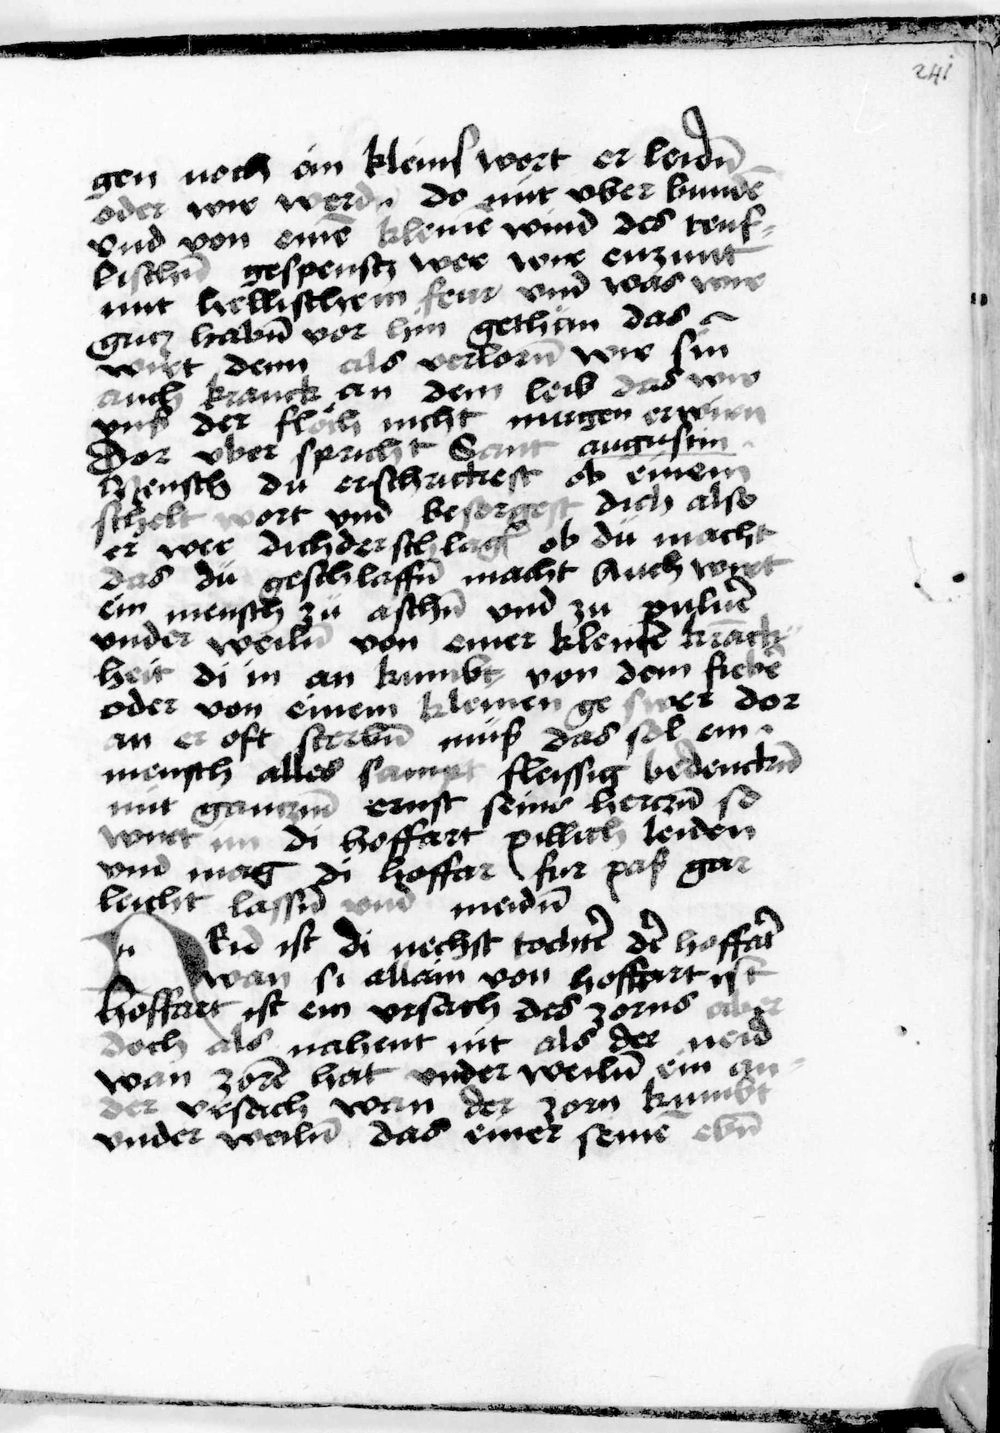 241
gen noch ein kleins wort er leidn̄
oder wir werdn do mit vber bundē
vnd von einē kleinē wind des teuf-
lischn̄ gespenstz wer wir enzunt
mit hellischem feur vnd was wir
gutz habn̄ vor hin gethan das
wirt denn als verlorn̄ wir sin
auch kranck an dem leib das wir
vnß der floch nicht mugen erwern
Dor vber spricht Sant augustin
Mensch du erschrickest ob einem
schelt wort vnd besorgest dich also
er wer dich der schlagn ob dü macht
das dü geschlaffn̄ macht Auch wirt
ein mensch zü aschn̄ vnd zu puluer̄
vnder weiln̄ von einer kleinen̄ krāck-
heit di in an kumbt von dem fieber̄
oder von einem kleinen ge swer dor
an er oft sterbn̄ müß das sol ein
mensch alles sampt fleissig bedenckn̄
mit ganczm̄ ernst seins herczn̄ so
wirt im di hoffart pillich leiden
vnd mag di hoffar fur paß gar
leicht lassn̄ vnd meidn̄
Neid ist di nechst tochter̄ der̄ hoffar̄t
wan si allain von hoffart ist
hoffart ist ein vrsach des zorns aber
doch als nahent nit als der neid
wan zorn̄ hat vnder weiln̄ ein an-
der vrsach wan der zorn kumbt
vnder weiln̄ das einer seinē ebn̄